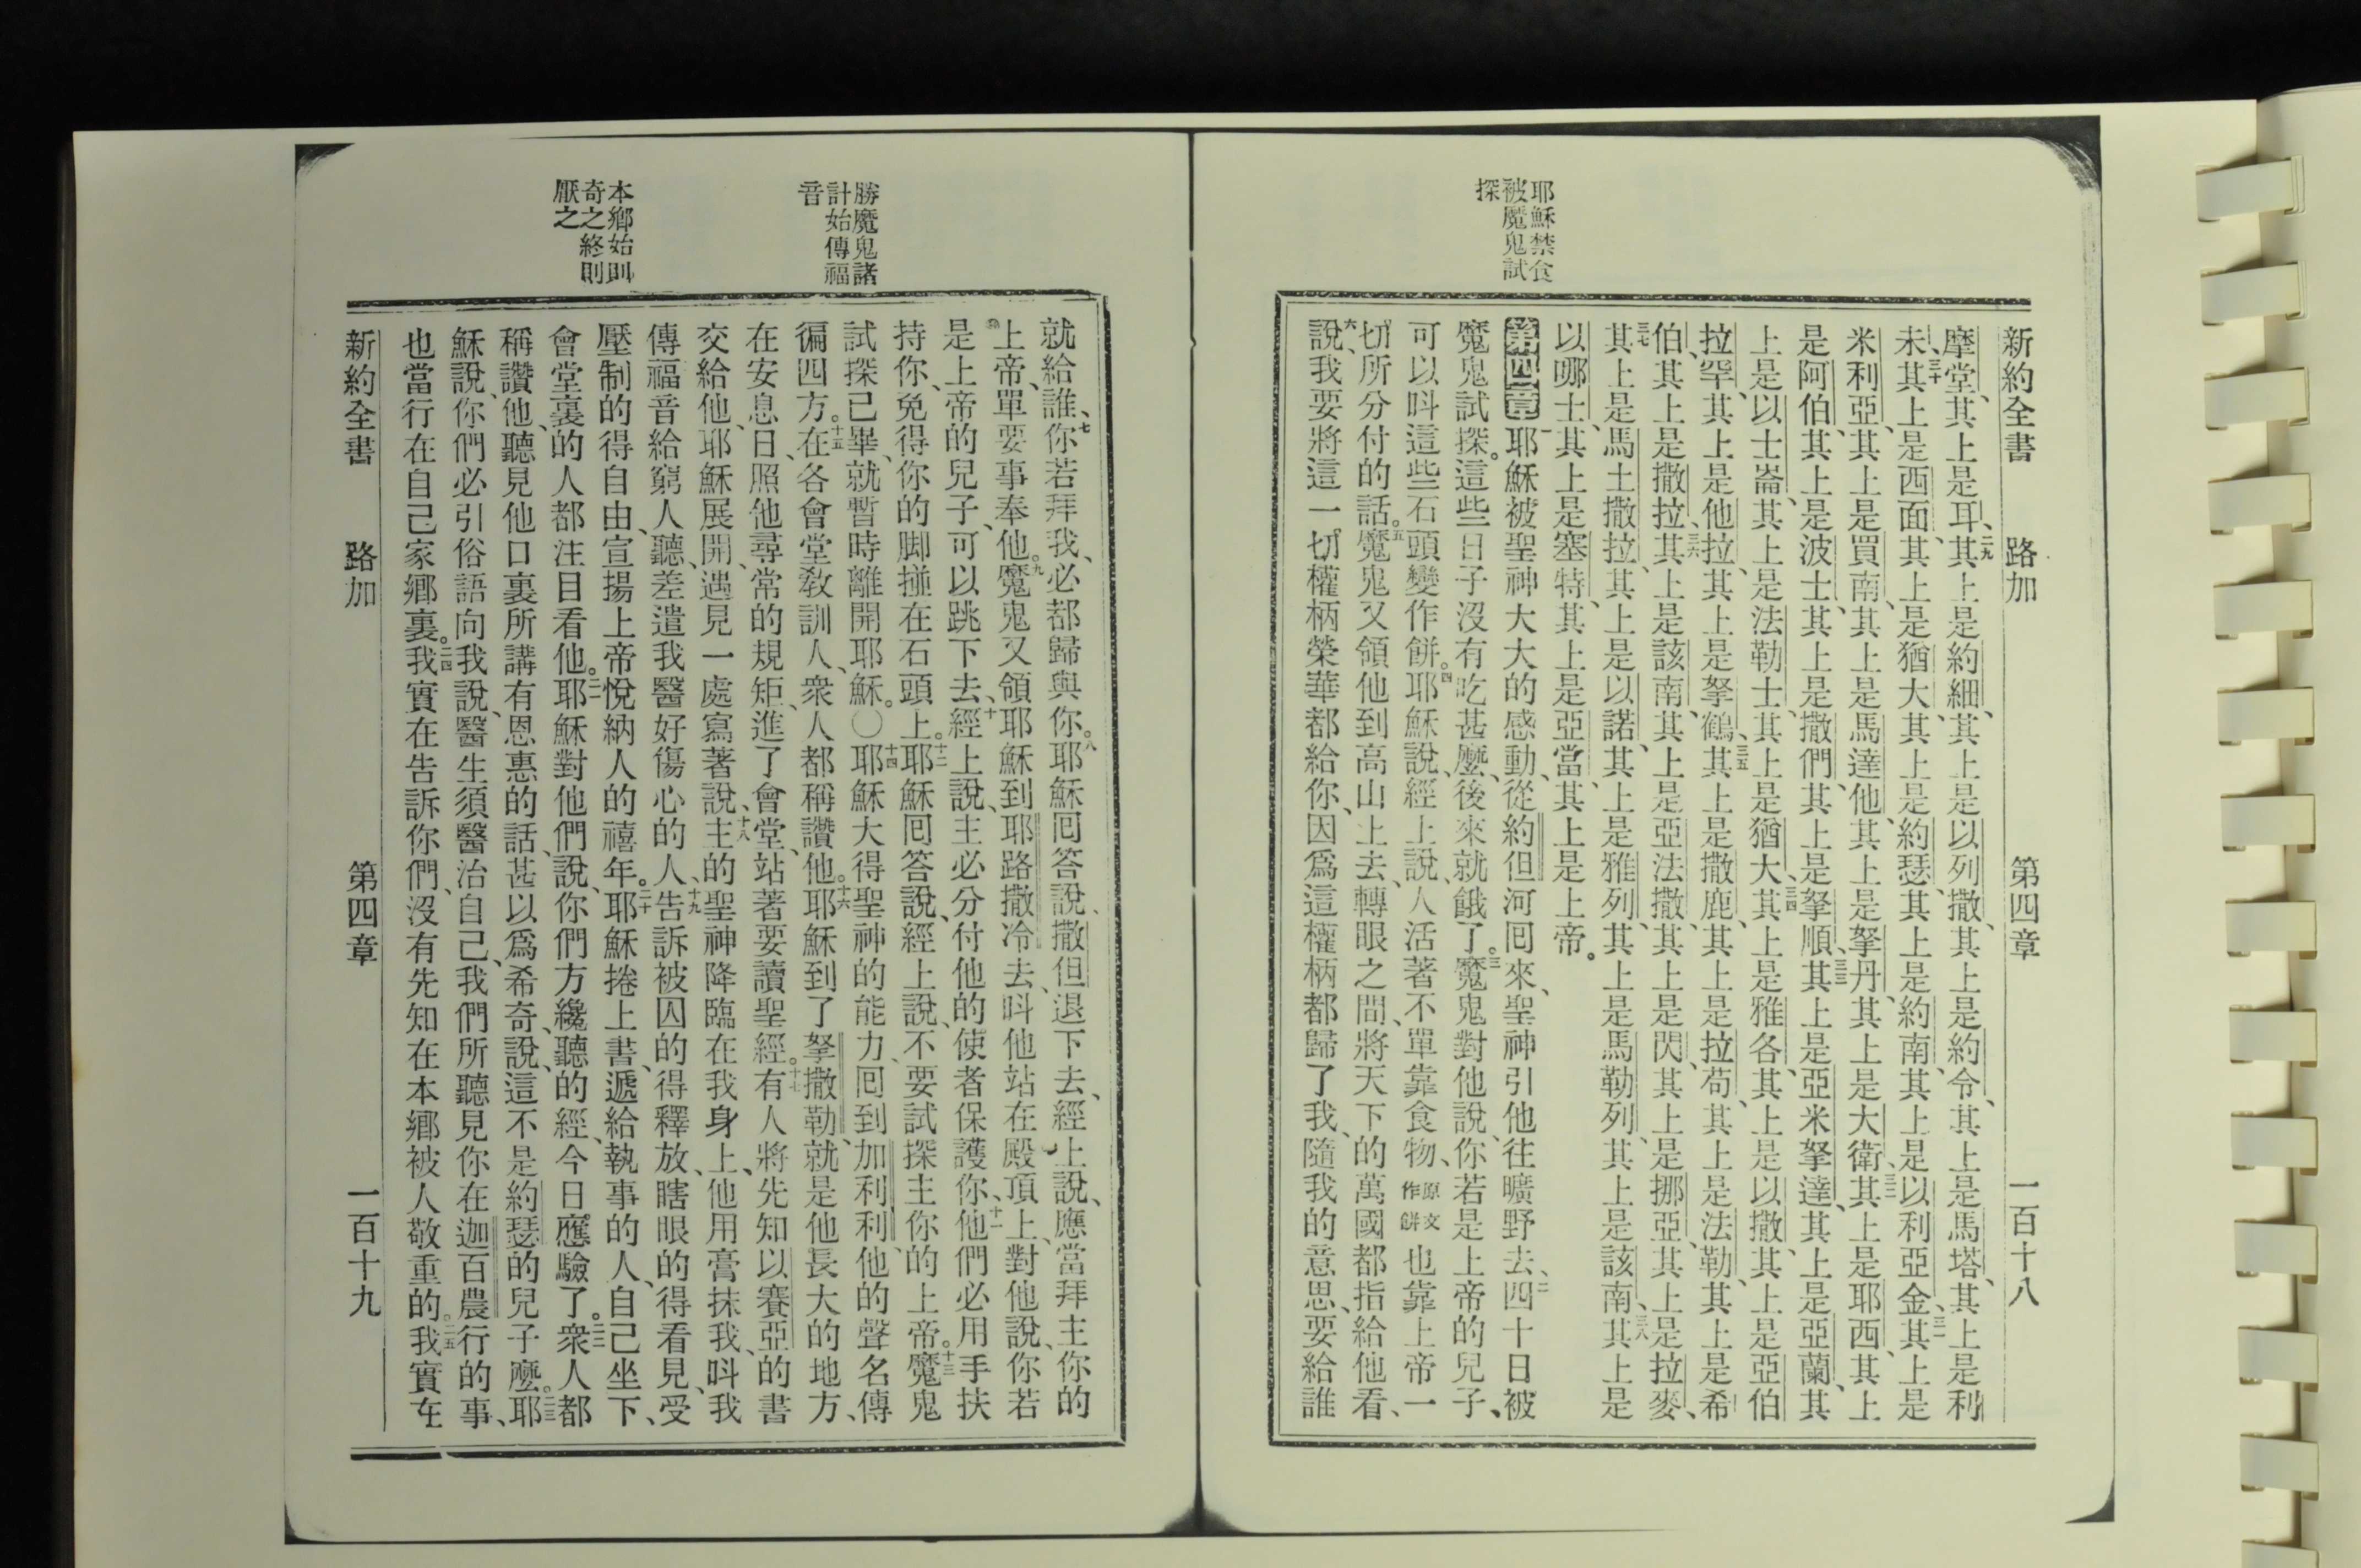 新約全書 路加 第四章 一百十八
耶穌禁食
被魔鬼試
探
摩堂、其上是耳、二九其上是約細、其上是以列撒、其上是約令、其上是馬塔、其上是利
未、三十其上是西面、其上是猶大、其上是約瑟、其上是約南、其上是以利亞金、三一其上是
米利亞、其上是買南、其上是馬達他、其上是拏丹、其上是大衛、三二其上是耶西、其上
是阿伯、其上是波士、其上是撒們、其上是拏順、三三其上是亞米拏達、其上是亞蘭、其
上是以士崙、其上是法勒士、其上是猶大、三四其上是雅各、其上是以撒、其上是亞伯
拉罕、其上是他拉、其上是拏鶴、三五其上是撒鹿、其上是拉苟、其上是法勒、其上是希
伯、其上是撒拉、三六其上是該南、其上是亞法撒、其上是閃、其上是挪亞、其上是拉麥、
三七其上是馬土撒拉、其上是以諾、其上是雅列、其上是馬勒列、其上是該南、三八其上是
以哪士、其上是塞特、其上是亞當、其上是上帝。
第四章 一耶穌被聖神大大的感動、從約但河囘來、聖神引他往曠野去、二四十日被
魔鬼試探。這些日子沒有吃甚麼、後來就餓了。三魔鬼對他說、你若是上帝的兒子、
可以呌這些石頭變作餅。四耶穌說、經上說、人活著不單靠食物、原文作餅也靠上帝一
切所分付的話。五魔鬼又領他到高山上去、轉眼之間、將天下的萬國都指給他看、
六說、我要將這一切權柄榮華都給你、因爲這權柄都歸了我、隨我的意思、要給誰
勝魔鬼諸
計始傳福
音
本鄉始則
奇之終則
厭之
就給誰、七你若拜我、必都歸與你。八耶穌囘答說、撒但退下去、經上說、應當拜主你的
上帝、單要事奉他。九魔鬼又領耶穌到耶路撒冷去、呌他站在殿頂上、對他說、你若
是上帝的兒子、可以跳下去、十經上說、主必分付他的使者保護你、十一他們必用手扶
持你、免得你的脚撞在石頭上。十二耶穌囘答說、經上說、不要試探主你的上帝。十三魔鬼
試探已畢、就暫時離開耶穌。○十四耶穌大得聖神的能力、囘到加利利、他的聲名傳
徧四方。十五在各會堂教訓人、衆人都稱讚他。十六耶穌到了拏撒勒、就是他長大的地方、
在安息日、照他尋常的規矩、進了會堂、站著要讀聖經。十七有人將先知以賽亞的書
交給他、耶穌展開、遇見一處寫著說、十八主的聖神降臨在我身上、他用膏抹我、呌我
傳福音給窮人聽、差遣我醫好傷心的人、十九告訴被囚的得釋放、瞎眼的得看見、受
壓制的得自由、宣揚上帝悅納人的禧年。二十耶穌捲上書、遞給執事的人、自己坐下、
會堂裏的人都注目看他。二一耶穌對他們說、你們方纔聽的經、今日應驗了。二二衆人都
稱讚他、聽見他口裏所講有恩惠的話、甚以爲希奇、說、這不是約瑟的兒子麼。二三耶
穌說、你們必引俗語向我說、醫生須醫治自己、我們所聽見你在迦百農行的事、
也當行在自己家鄉裏。二四我實在告訴你們、沒有先知在本鄉被人敬重的。二五我實在
新約全書 路加 第四章 一百十九